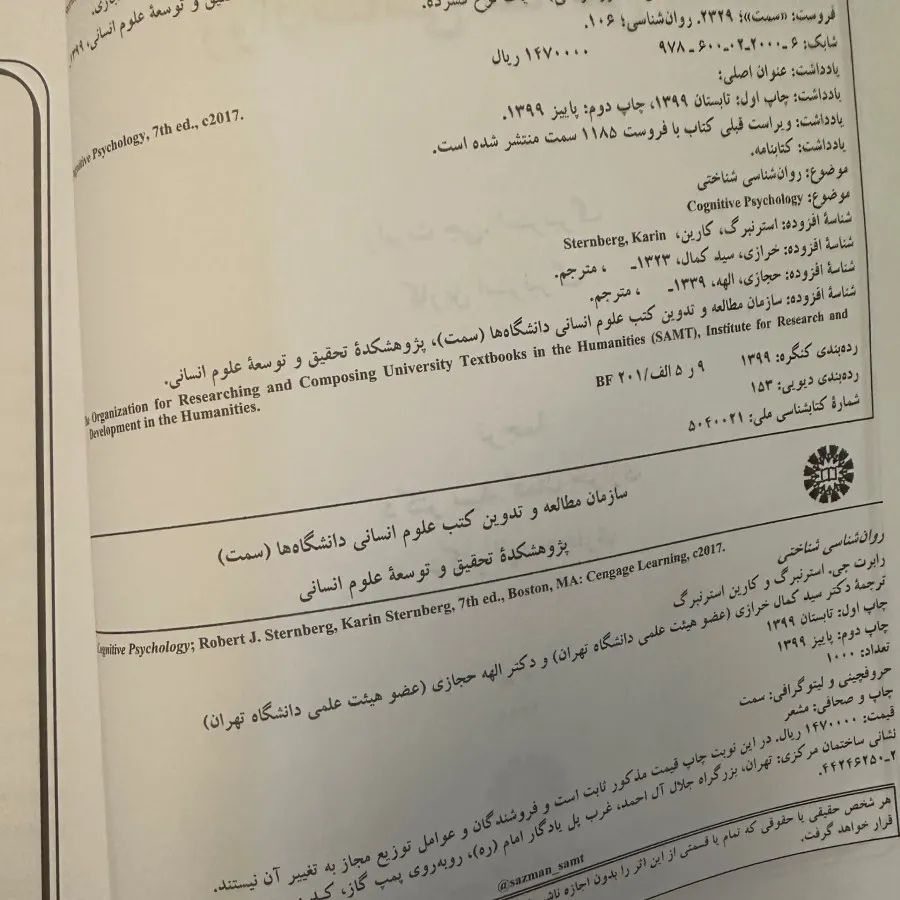 تحقیق و توسعهٔ علوم انسانی، ۱۳۹۹.
فروست: «سمت»؛ ۲۳۲۹. روان‌شناسی؛ ۱۰۶.
شابک: ۶ـ۲۰۰۰ـ۰۲ـ۶۰۰ـ۹۷۸ ۱۴۷۰۰۰۰ ریال
یادداشت: عنوان اصلی:
Cognitive Psychology, 7th ed., c2017.
یادداشت: چاپ اول: تابستان ۱۳۹۹، چاپ دوم: پاییز ۱۳۹۹.
یادداشت: ویراست قبلی کتاب با فروست ۱۱۸۵ سمت منتشر شده است.
یادداشت: کتابنامه.
موضوع: روان‌شناسی شناختی
موضوع: Cognitive Psychology
شناسهٔ افزوده: استرنبرگ، کارین، Sternberg, Karin
شناسهٔ افزوده: خرازی، سید کمال، ۱۳۲۳ـ ، مترجم.
شناسهٔ افزوده: حجازی، الهه، ۱۳۳۹ـ ، مترجم.
شناسهٔ افزوده: سازمان مطالعه و تدوین کتب علوم انسانی دانشگاه‌ها (سمت)، پژوهشکدهٔ تحقیق و توسعهٔ علوم انسانی.
Organization for Researching and Composing University Textbooks in the Humanities (SAMT), Institute for Research and
Development in the Humanities.
رده‌بندی کنگره: ۱۳۹۹ ۹ ر ۵ الف/۲۰۱ BF
رده‌بندی دیویی: ۱۵۳
شمارهٔ کتابشناسی ملی: ۵۰۴۰۰۲۱
سازمان مطالعه و تدوین کتب علوم انسانی دانشگاه‌ها (سمت)
پژوهشکدهٔ تحقیق و توسعهٔ علوم انسانی
روان‌شناسی شناختی
Cognitive Psychology; Robert J. Sternberg, Karin Sternberg, 7th ed., Boston, MA: Cengage Learning, c2017.
رابرت جی. استرنبرگ و کارین استرنبرگ
ترجمهٔ دکتر سید کمال خرازی (عضو هیئت علمی دانشگاه تهران) و دکتر الهه حجازی (عضو هیئت علمی دانشگاه تهران)
چاپ اول: تابستان ۱۳۹۹
چاپ دوم: پاییز ۱۳۹۹
تعداد: ۱۰۰۰
حروفچینی و لیتوگرافی: سمت
چاپ و صحافی: مشعر
قیمت: ۱۴۷۰۰۰۰ ریال. در این نوبت چاپ قیمت مذکور ثابت است و فروشندگان و عوامل توزیع مجاز به تغییر آن نیستند.
نشانی ساختمان مرکزی: تهران، بزرگراه جلال آل احمد، غرب پل یادگار امام (ره)، روبه‌روی پمپ گاز،
۲ـ۴۴۲۴۶۲۵۰.
@sazman_samt
هر شخص حقیقی یا حقوقی که تمام یا قسمتی از این اثر را بدون اجازه
قرار خواهد گرفت.